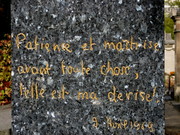 Patience et maîtrise
avant toute chose,
telle est ma devise.